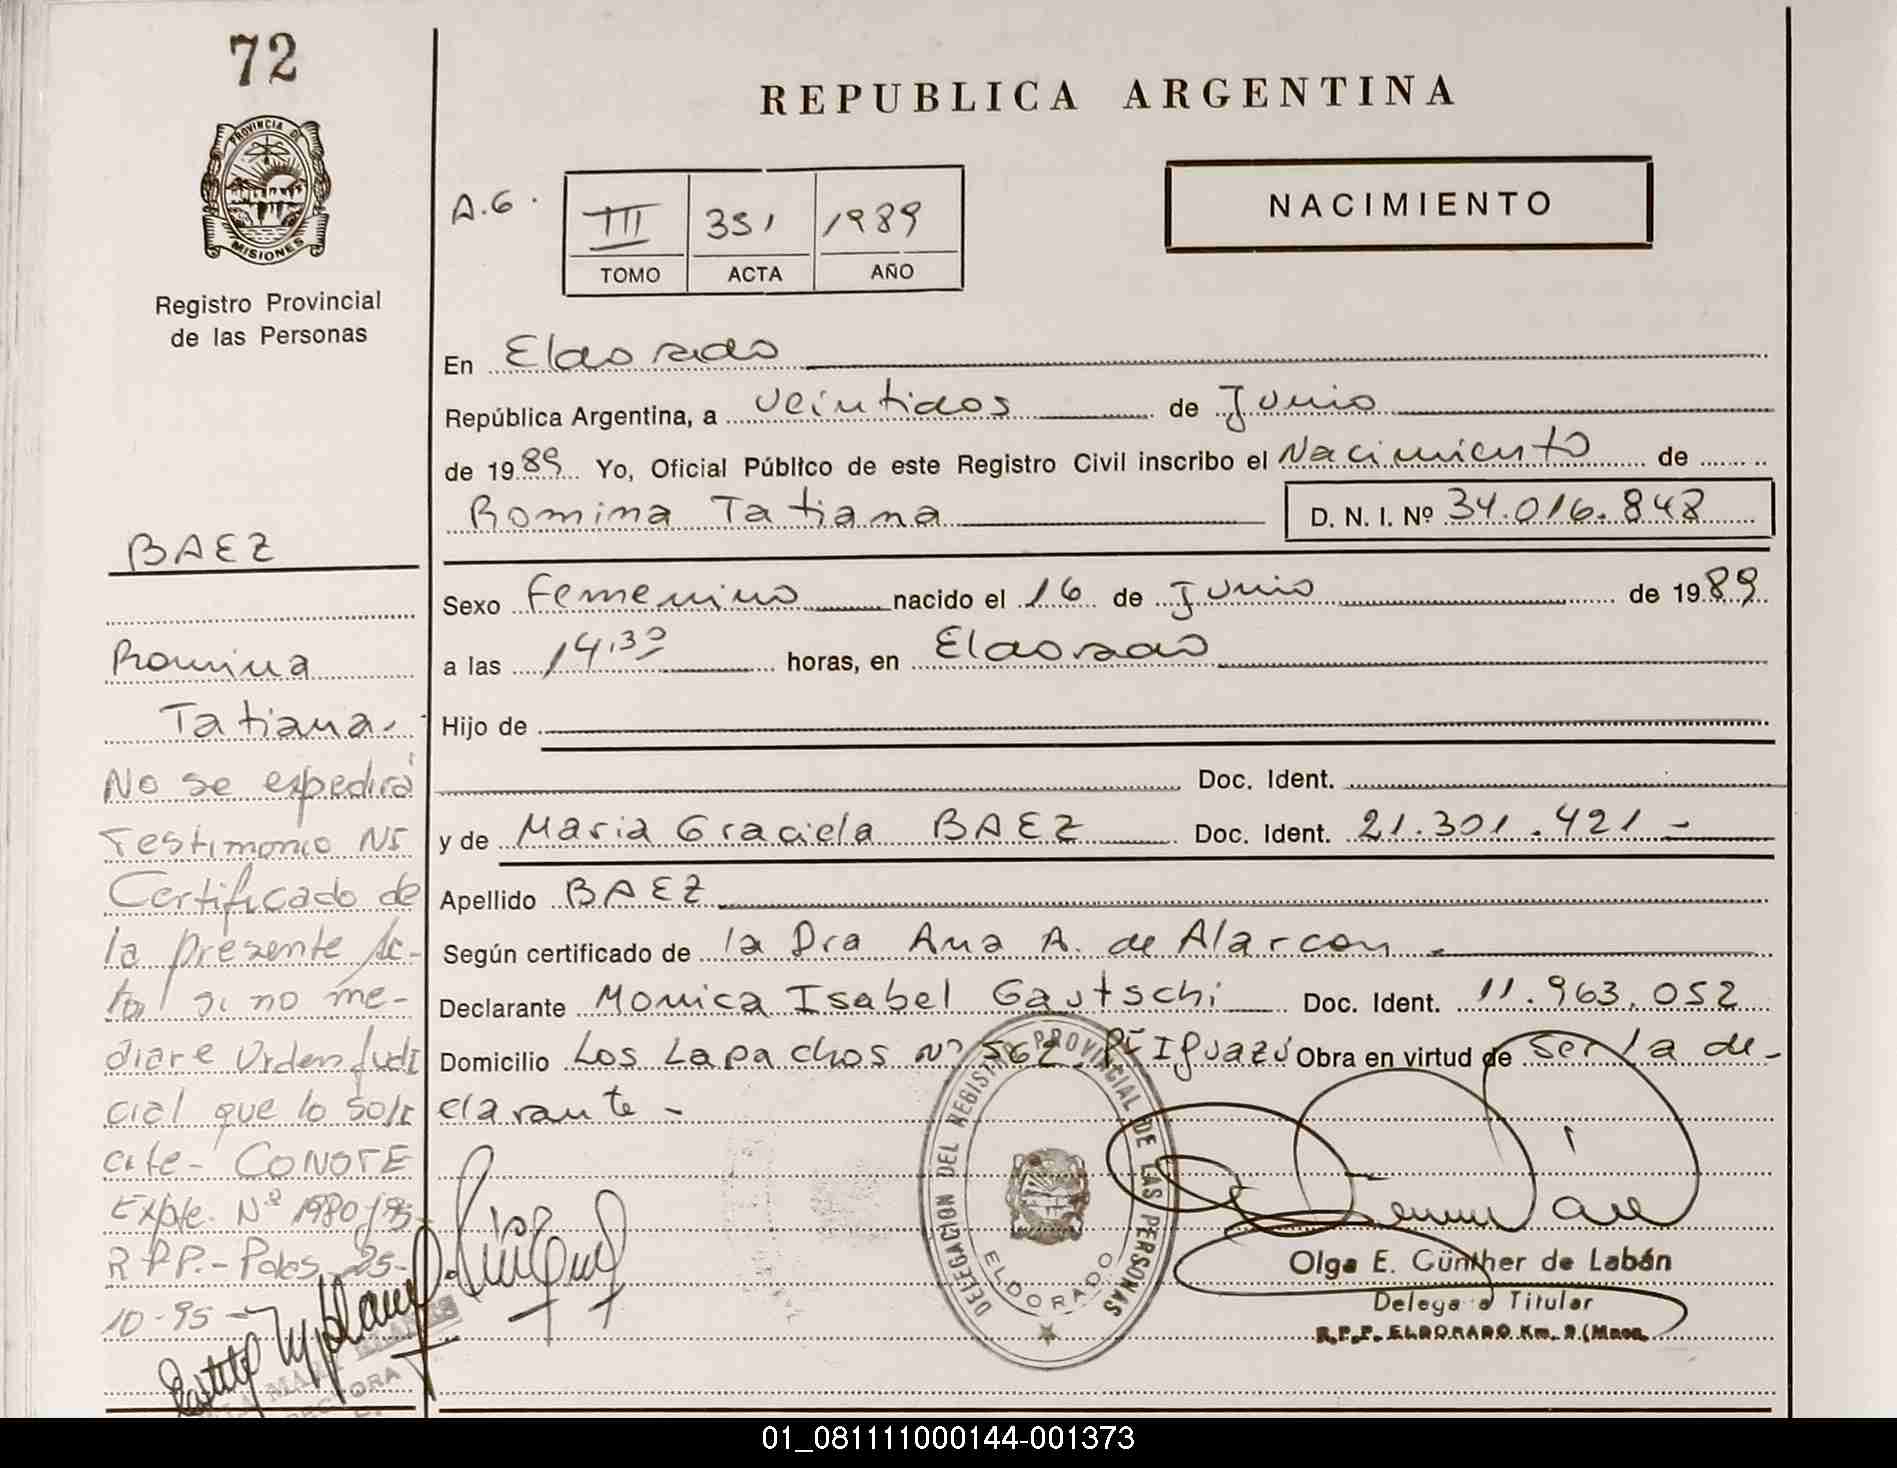 72
PROVINCIA DE
MISIONES
Registro Provincial
de las Personas
REPUBLICA ARGENTINA
A.G.
III 351 1989
TOMO ACTA AÑO
NACIMIENTO
En Eldorado
República Argentina, a veintidos de Junio
de 1989 Yo, Oficial Público de este Registro Civil inscribo el Nacimiento de
Romina Tatiana D. N. I. Nº 34.016.848
Sexo Femenino nacido el 16 de Junio de 1989
a las 14,30 horas, en Eldorado
Hijo de
Doc. Ident.
y de Maria Graciela BAEZ Doc. Ident. 21.301.421 -
Apellido BAEZ
Según certificado de la Dra Ana A. de Alarcon
Declarante Monica Isabel Gautschi Doc. Ident. 11.963.052
Domicilio Los Lapachos Nº 562 Pt Iguazú Obra en virtud de ser la de-
clarante -
BAEZ
Romina
Tatiana.
No se expedirá
Testimonio Ni
Certificado de
la presente Ac-
ta si no me-
diare Orden Judi
cial que lo soli
cite - CONSTE
Expte. Nº 1980/95
R P P. - Pdas 25-
10-95
DELEGACION DEL REGISTRO PROVINCIAL DE LAS PERSONAS
ELDORADO
Olga E. Günther de Labán
Delegada Titular
R.P.P. ELDORADO Km. 9 (Mnes.
01_081111000144-001373